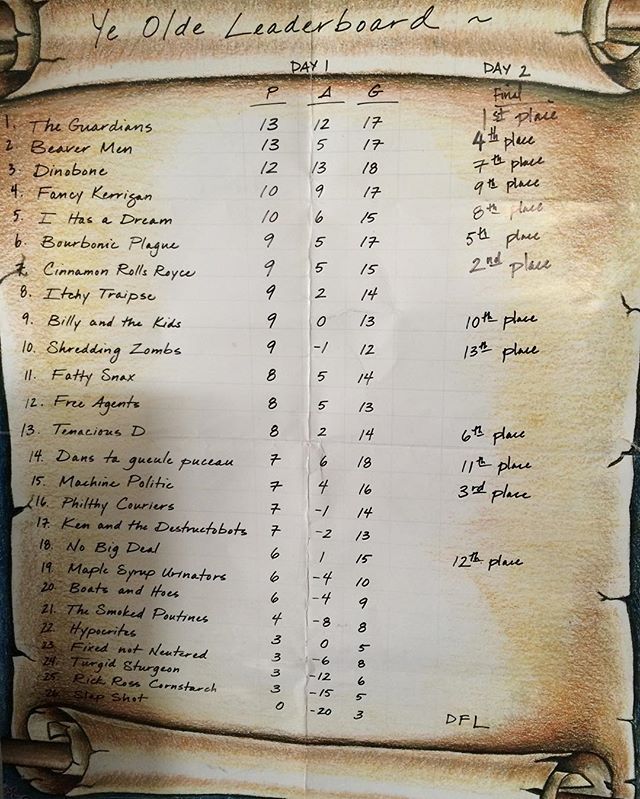 Ye Olde Leaderboard ~
DAY 1 DAY 2
P Δ G Final
1. The Guardians 13 12 17 1st place
2 Beaver Men 13 5 17 4th place
3. Dinobone 12 13 18 7th place
4. Fancy Kerrigan 10 9 17 9th place
5. I Has a Dream 10 6 15 8th place
6. Bourbonic Plague 9 5 17 5th place
7. Cinnamon Rolls Royce 9 5 15 2nd place
8. Itchy Traipse 9 2 14
9. Billy and the Kids 9 0 13 10th place
10. Shredding Zombs 9 -1 12 13th place
11. Fatty Snax 8 5 14
12. Free Agents 8 5 13
13. Tenacious D 8 2 14 6th place
14. Dans ta gueule puceau 7 6 18 11th place
15. Machine Politic 7 4 16 3rd place
16. Philthy Couriers 7 -1 14
17. Ken and the Destructobots 7 -2 13
18. No Big Deal 6 1 15 12th place
19. Maple Syrup Urinators 6 -4 10
20. Boats and Hoes 6 -4 9
21. The Smoked Poutines 4 -8 8
22. Hypocrites 3 0 5
23. Fixed not Neutered 3 -6 8
24. Turgid Sturgeon 3 -12 6
25. Rick Ross Cornstarch 3 -15 5
26. Slap Shot 0 -20 3 DFL